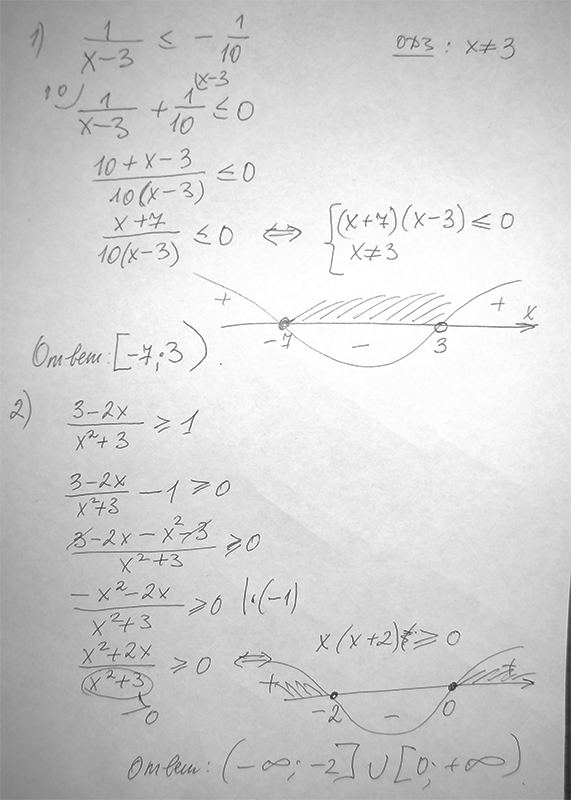 1) 1/(x-3) ≤ - 1/10 ОДЗ: x≠3
10) 1/(x-3) + 1/10 (x-3 ≤ 0
(10+x-3)/(10(x-3)) ≤ 0
(x+7)/(10(x-3)) ≤ 0 ⇔ { (x+7)(x-3) ≤ 0
x≠3
+ - + x
-7 3
Ответ: [-7; 3).
2) (3-2x)/(x²+3) ≥ 1
(3-2x)/(x²+3) - 1 ≥ 0
(3-2x-x²-3)/(x²+3) ≥ 0
(-x²-2x)/(x²+3) ≥ 0 |·(-1)
(x²+2x)/(x²+3) ≥ 0 ⇔ x(x+2) ≥ 0
>0
+ - +
-2 0
Ответ: (-∞; -2] ∪ [0; +∞)